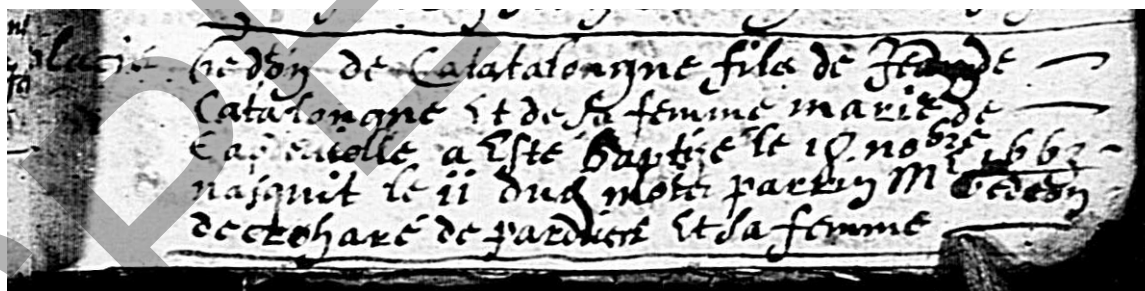 Gedeon de Catatalongne filz de Jean de
Catalongne Et de sa femme marie de
a Esté baptizé le 18. nobre 1662
nasquit le ii dud mois parrin Mr Gedeon
de et sa femme